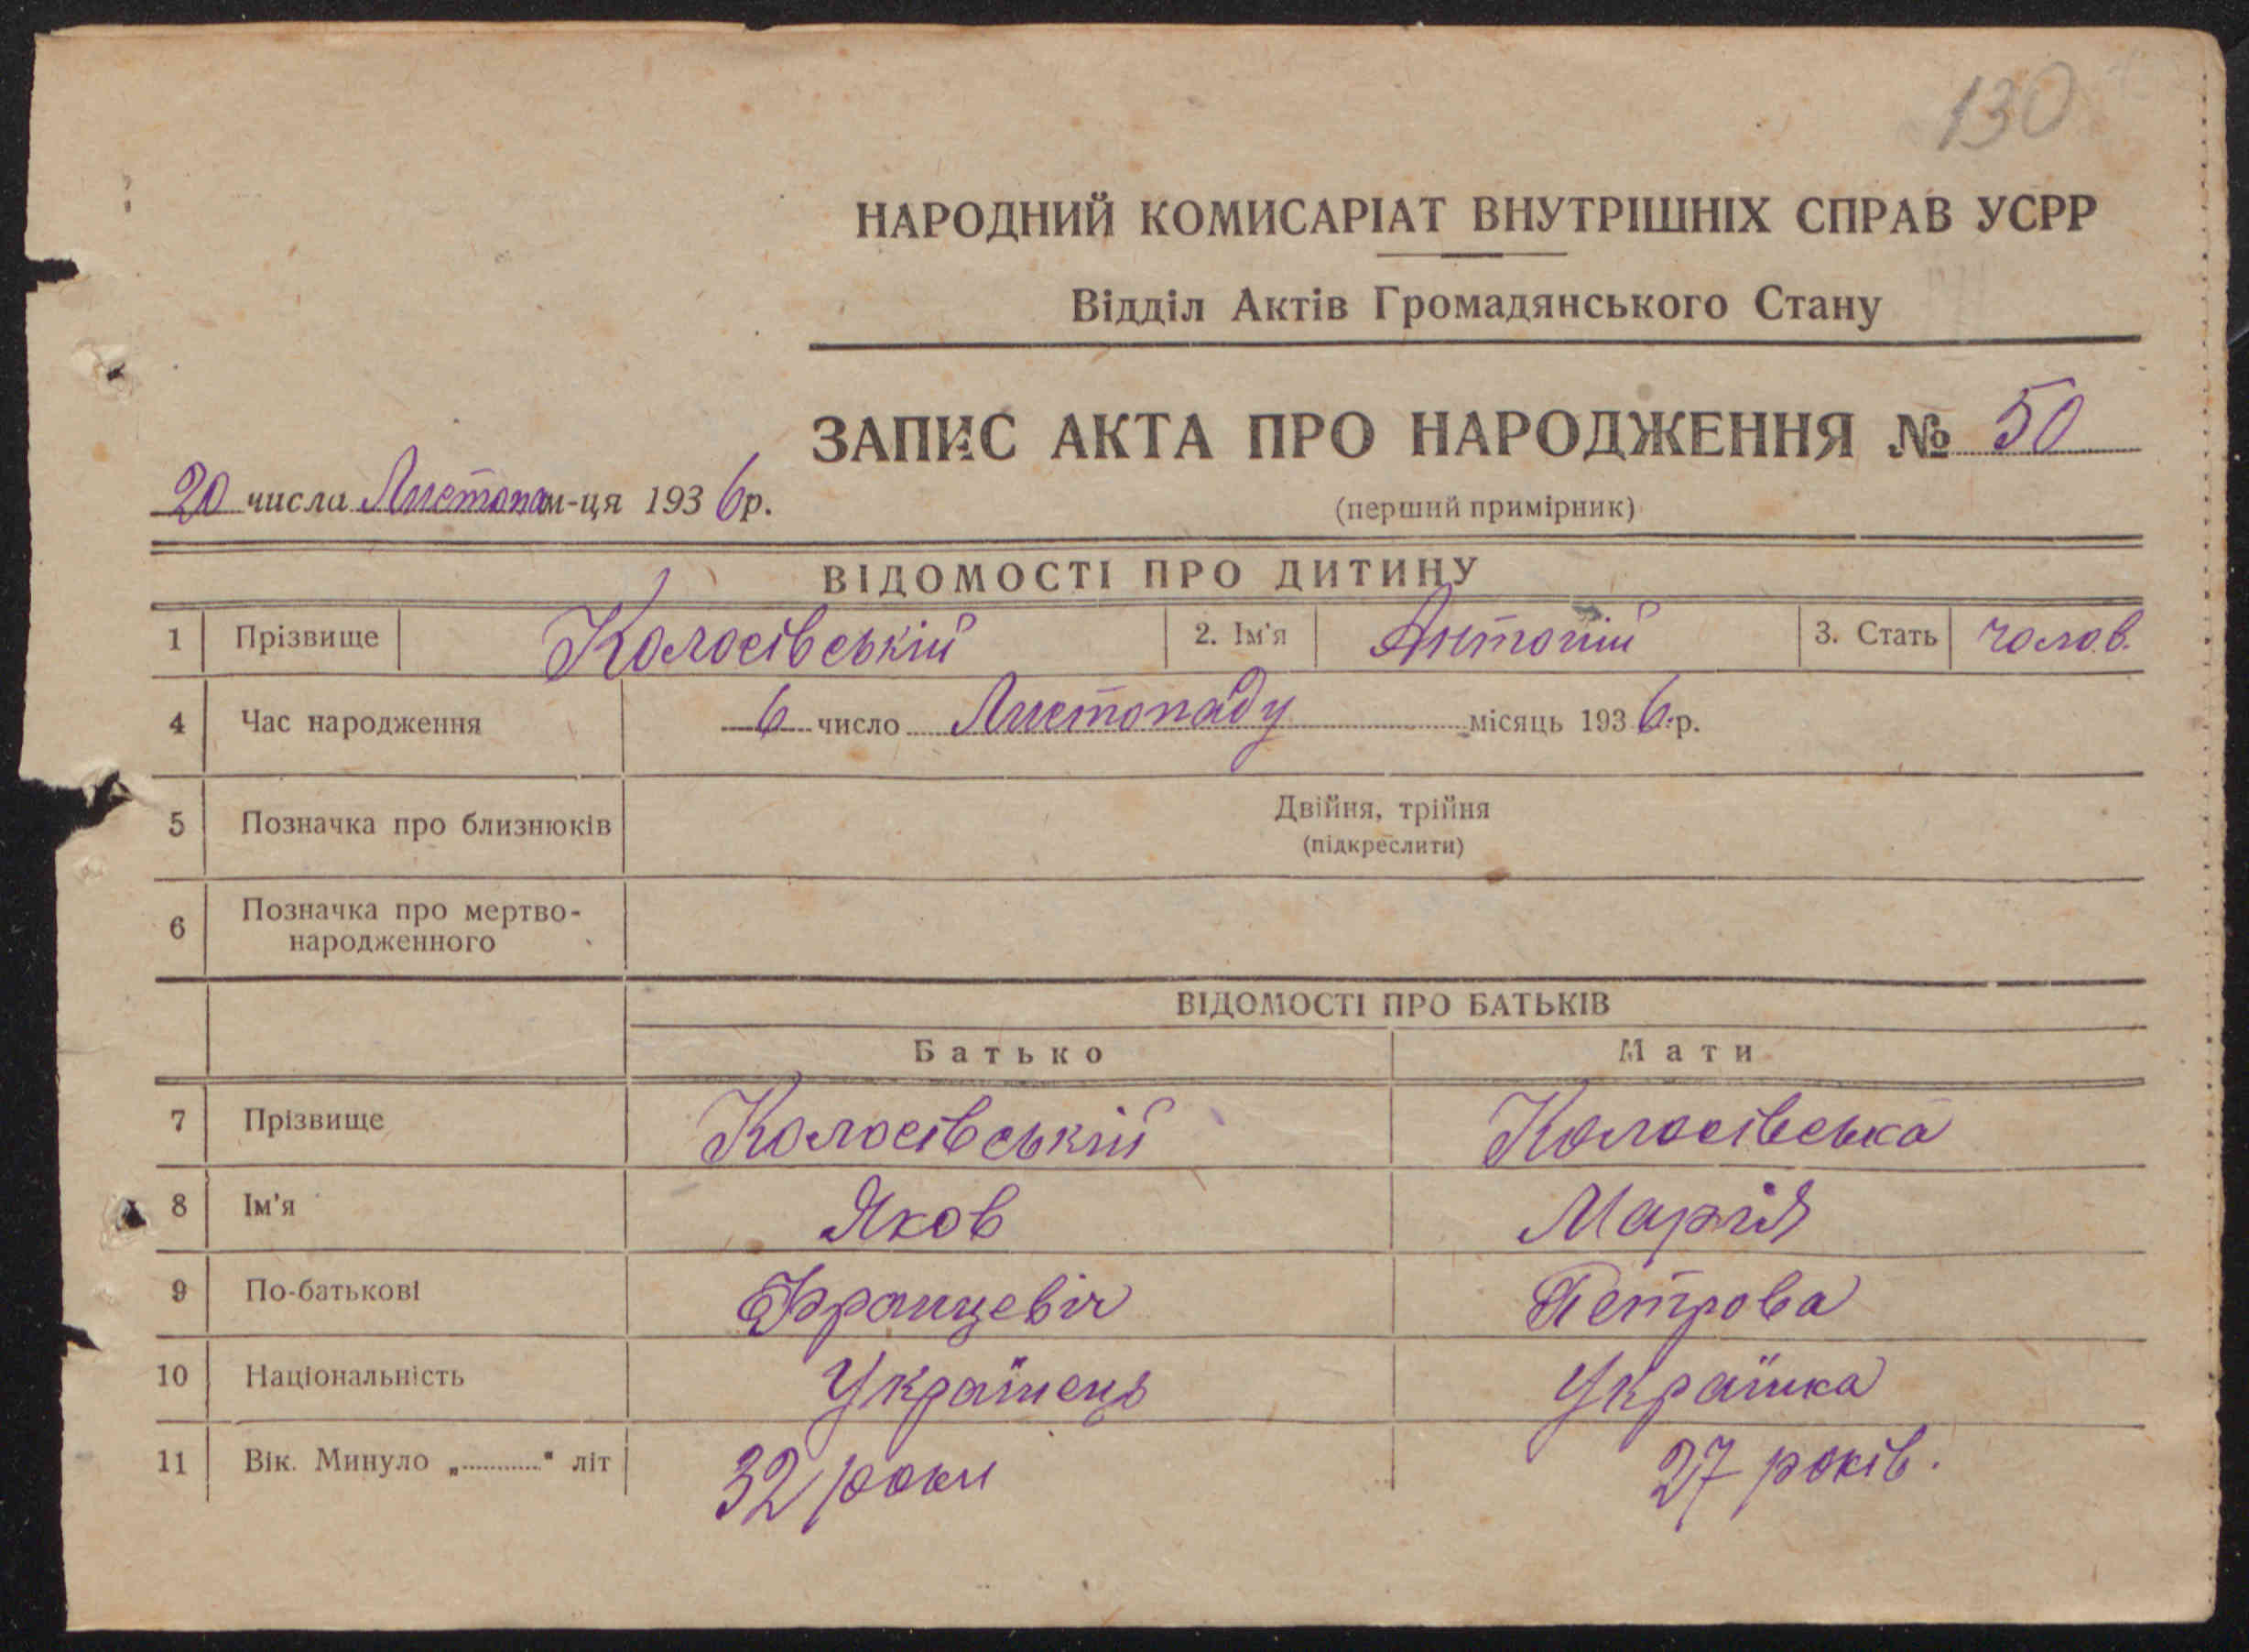 130
НАРОДНИЙ КОМИСАРІАТ ВНУТРІШНІХ СПРАВ УСРР
Відділ Актів Громадянського Стану
ЗАПИС АКТА ПРО НАРОДЖЕННЯ № 50
20 числа Листопа м-ця 1936 р.
(перший примірник)
ВІДОМОСТІ ПРО ДИТИНУ
1 Прізвище Колосівській 2. Ім'я Антоній 3. Стать чолов.
4 Час народження 6 число Листопаду місяць 1936 р.
5 Позначка про близнюків Двійня, трійня
(підкреслити)
6 Позначка про мертво-
народженного
ВІДОМОСТІ ПРО БАТЬКІВ
Батько Мати
7 Прізвище Колосівській Колосівська
8 Ім'я Яков Марія
9 По-батькові Францевіч Петрова
10 Національність Українець Українка
11 Вік. Минуло „............" літ 32 роки 27 років.